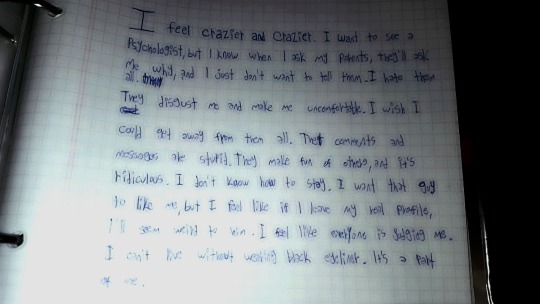 I feel crazier and crazier. I want to see a
Psychologist, but I know when I ask my parents, they'll ask
me why, and I just don't want to tell them. I hate them
all.
They disgust me and make me uncomfortable. I wish I
could get away from them all. Their comments and
messages are stupid. They make fun of others, and it's
ridiculous. I don't know how to stay. I want that guy
to like me, but I feel like if I leave my real profile,
I'll seem weird to him. I feel like everyone is judging me.
I can't live without wearing black eyeliner. It's a part
of me.